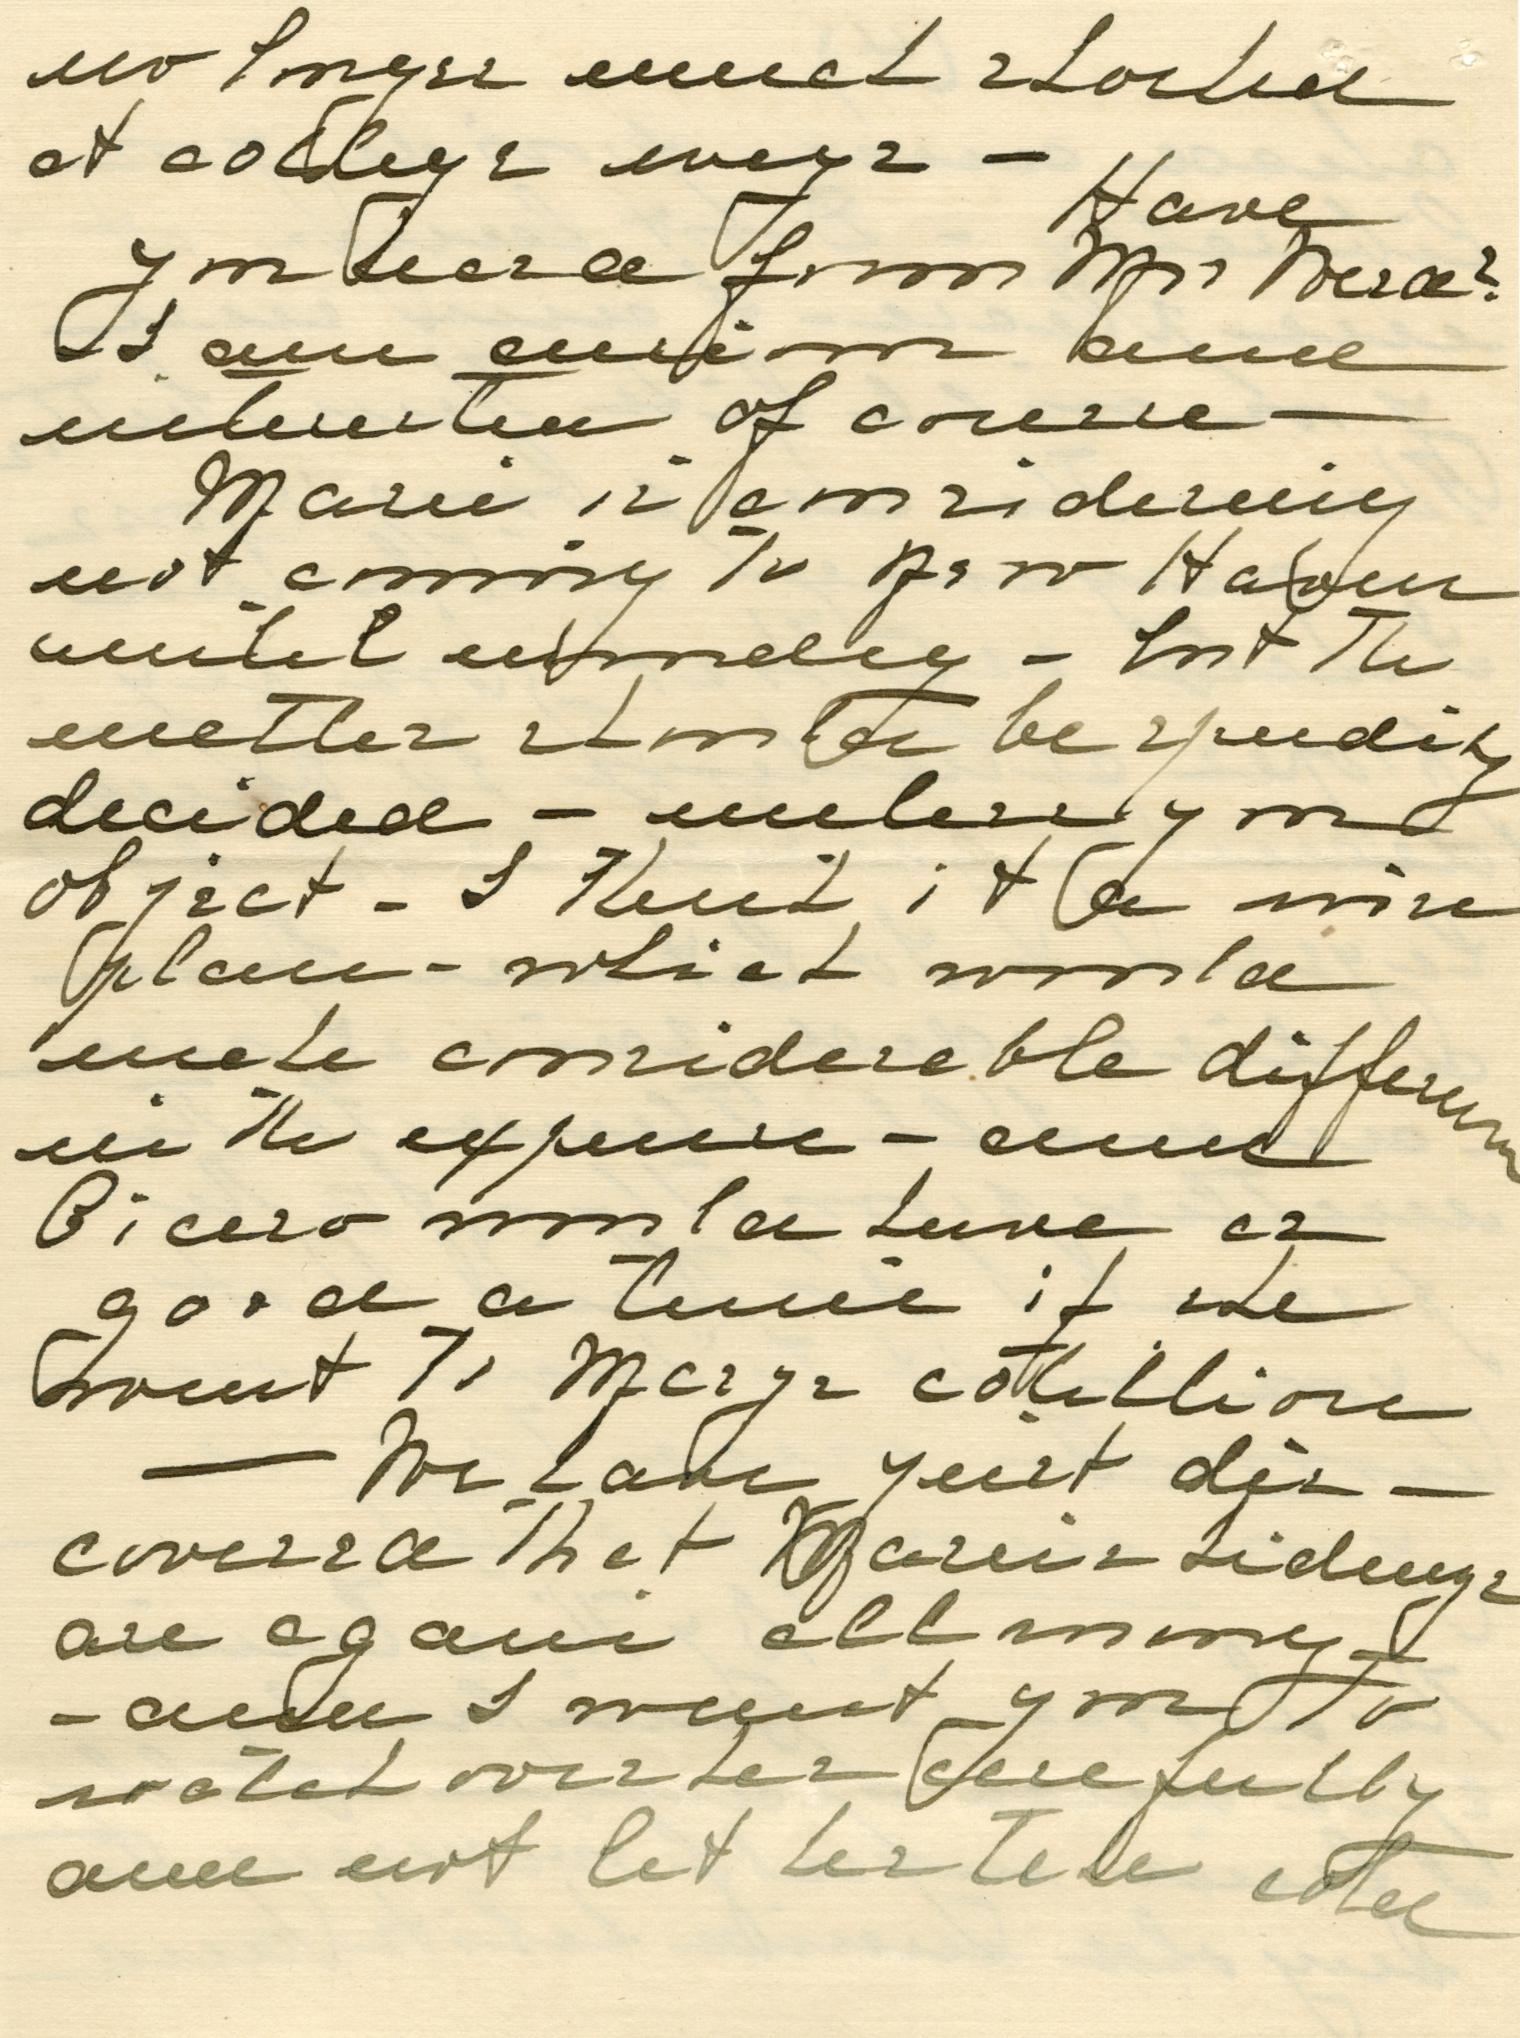 no longer much shocked
at college ways –
Have
you heard from Mr Weed?
I am anxious and
interested of course –
Marie is considering
not coming to New Haven
until monday – but the
matter should be speedily
decided – unless you
object – I think it a wise
plan – which would
make considerable difference
in the expense – and
Cicero would have as
good a time if she
went to Marys cotillion
– We have just dis–
covered that Maries kidneys
are again all wrong
– and I want you to
watch over her carefully
and not let her take cold